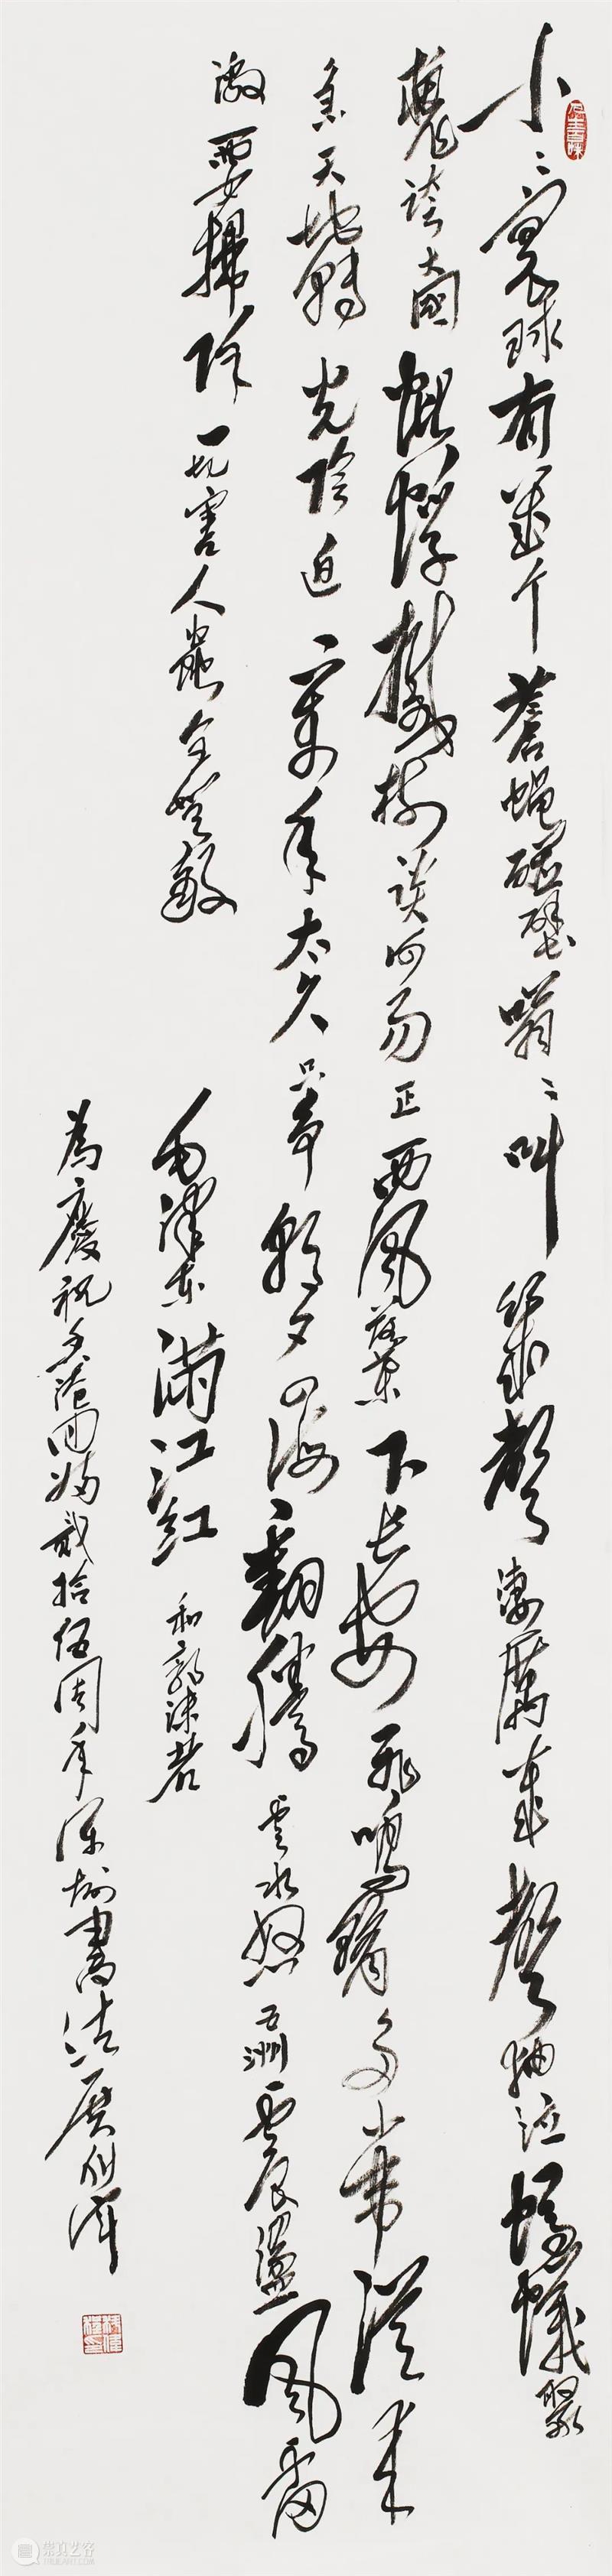 小〻寰球有幾个蒼蝇碰壁嗡〻叫幾聲淒厲幾聲抽泣螞蟻緣
槐誇大國蚍蜉撼樹談何易正西風落葉下長安飛鳴鏑多少事從來
急天地轉光陰迫一万年太久只爭朝夕四海翻騰雲水怒五洲震盪風雷
激要掃除一切害人蟲全無敵
毛澤東滿江紅和郭沫若
為慶祝香港回歸貳拾伍周年深圳書法展
崇真艺客
TRUEART.COM